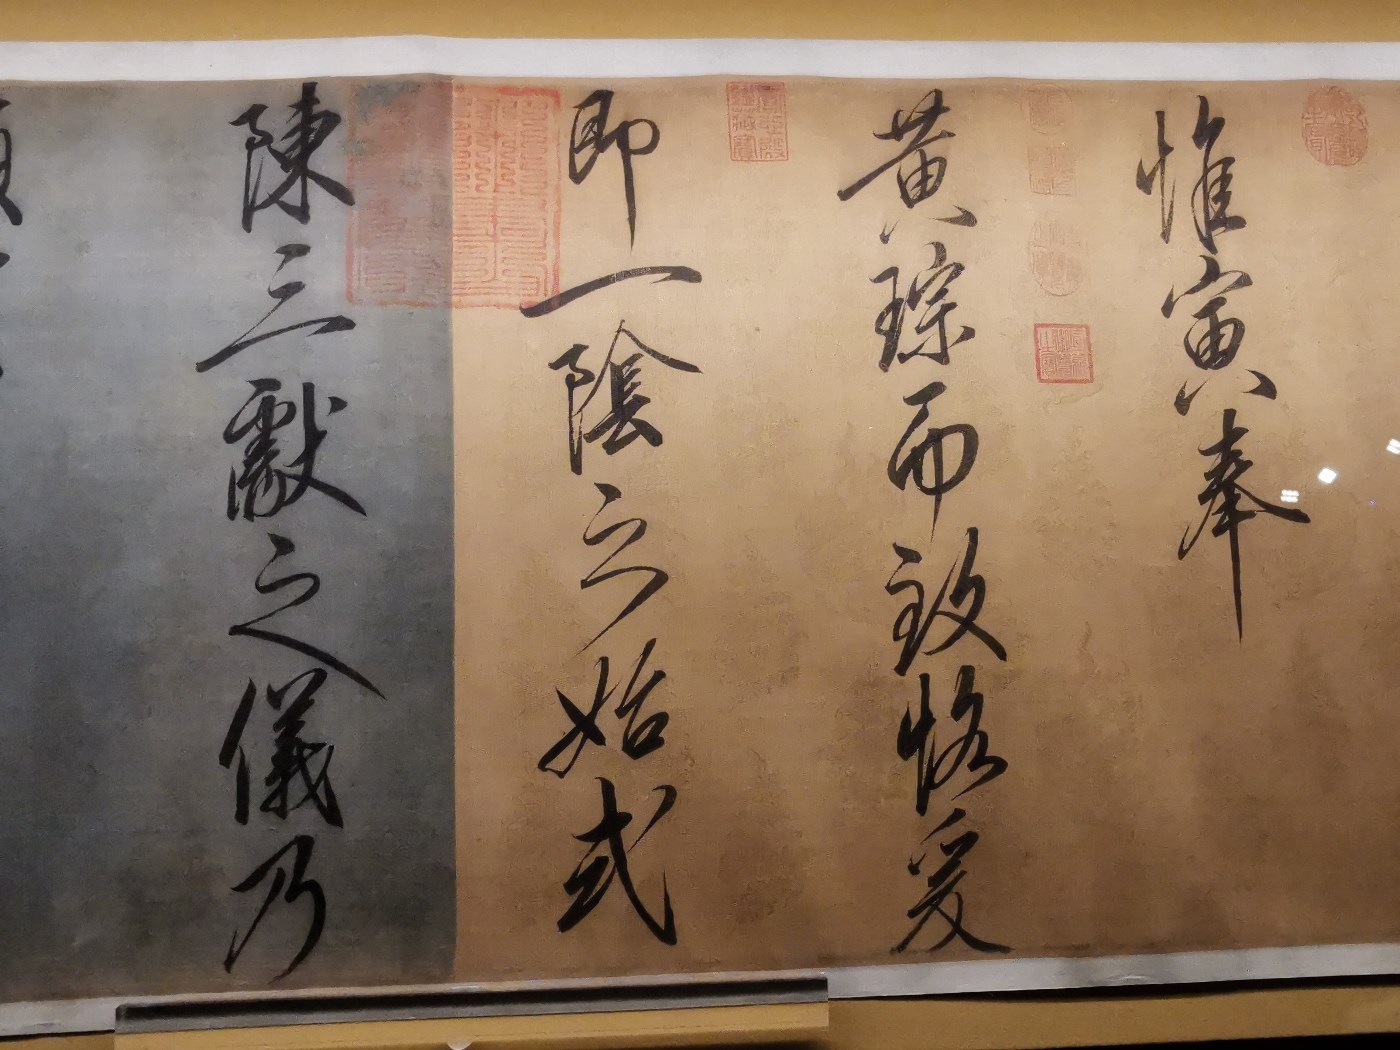 惟寅奉
黄琮而致恪爰
即一陰之始式
陳三獻之儀乃